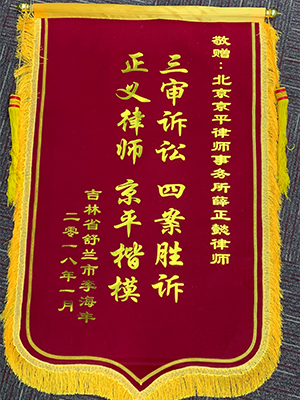 敬赠：北京京平律师事务所薛正懿律师
三审诉讼 四案胜诉
正义律师 京平楷模
吉林省舒兰市李海丰
二零一八年一月